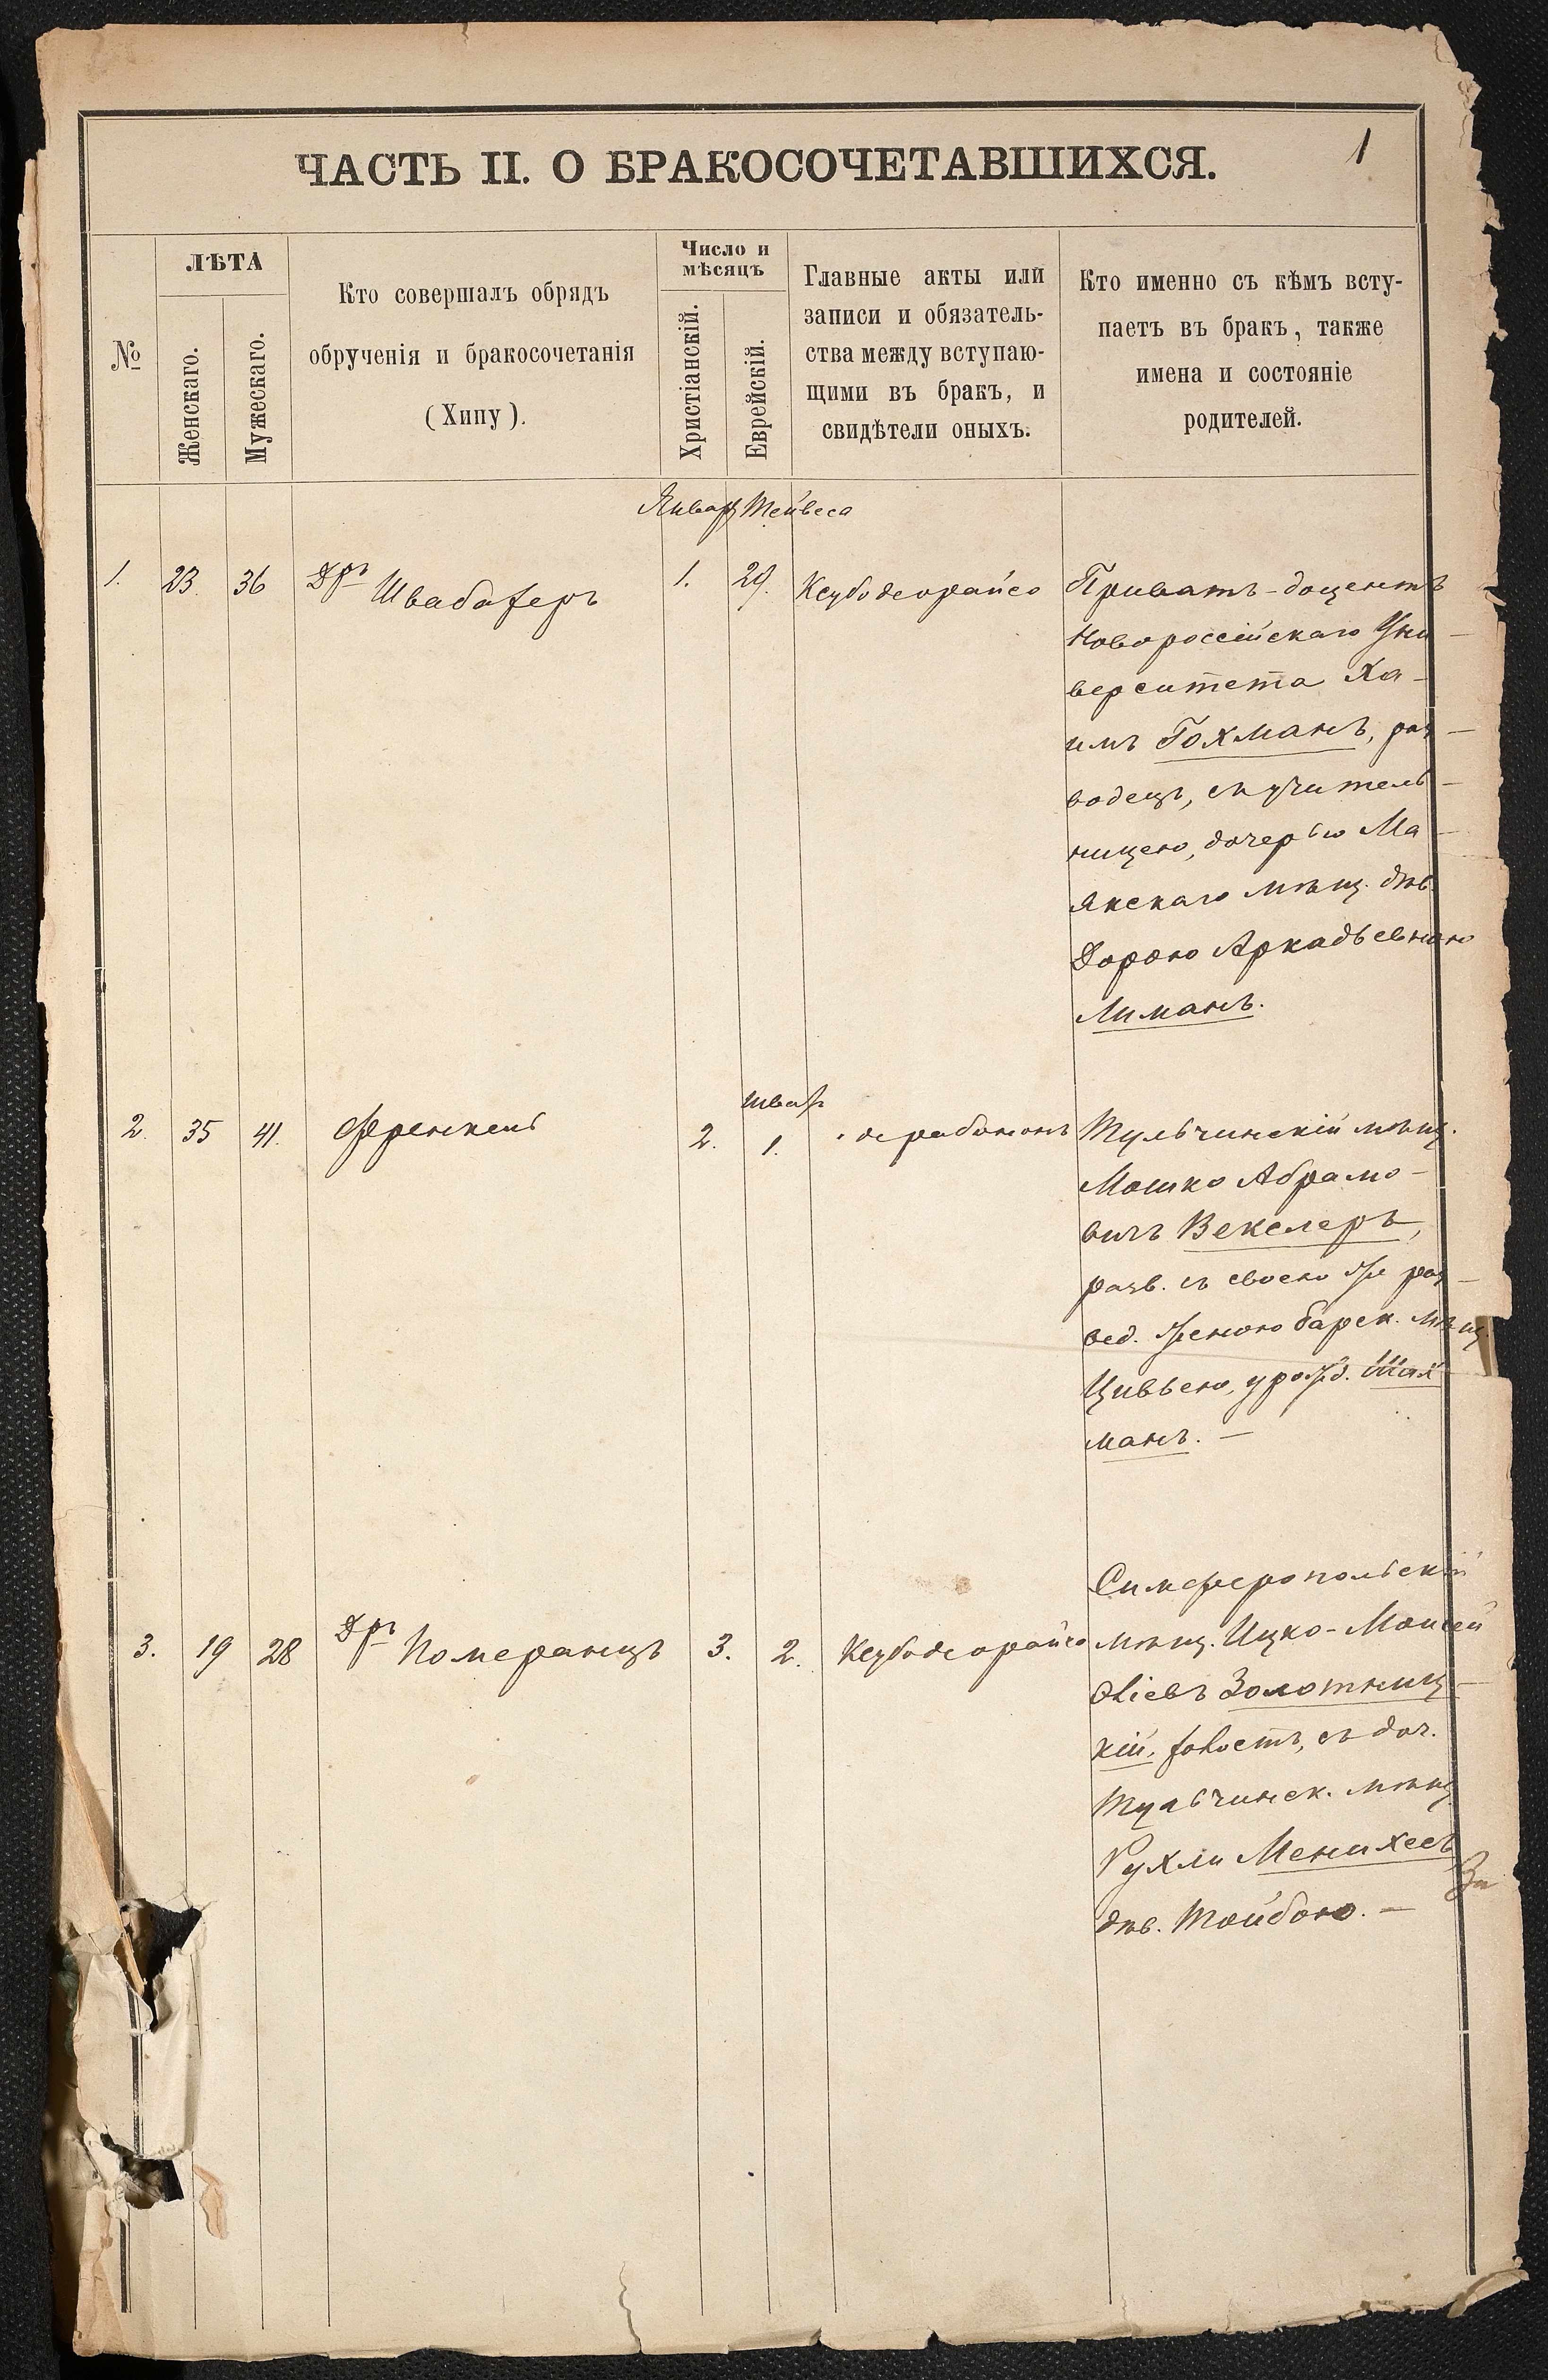 1
ЧАСТЬ II. О БРАКОСОЧЕТАВШИХСЯ.
№
ЛѢТА
Женскаго.
Мужескаго.
Кто совершалъ обрядъ
обрученія и бракосочетанія
(Хипу).
Число и
мѣсяцъ
Христіанскій.
Еврейскій.
Главные акты или
записи и обязатель-
ства между вступаю-
щими въ бракъ, и
свидѣтели оныхъ.
Кто именно съ кѣмъ всту-
паетъ въ бракъ, также
имена и состояніе
родителей.
Январ Тейвеса
1. 23. 36 Дръ Швабахеръ 1. 29. Ксубодеорайсо
Приватъ-доцентъ
Новороссійскаго Уни-
верситета Ха-
имъ Гохманъ, раз-
водецъ, съ учитель-
ницею, дочерью Ма-
якскаго мѣщ. дѣв.
Дорою Аркадьевною
Лиманъ.
Шват
2. 35 41. Френкель 2. 1. " дерабононъ
Тульчинскій мѣщ.
Мошко Абрамо-
вичъ Векслеръ,
разв. съ своею же раз-
вед. женою барск. мѣщ.
Цивьею, урожд.
манъ. —
3. 19 28 Дръ Померанцъ 3. 2. Ксубодеорайсо
Симферопольскій
мѣщ. Ицко-Моисей
Овіевъ Золотниц-
кій, холостъ, съ доч.
Тульчинск. мѣщ.
Рухли Менихесъ
дѣв. Тойбою. —
За